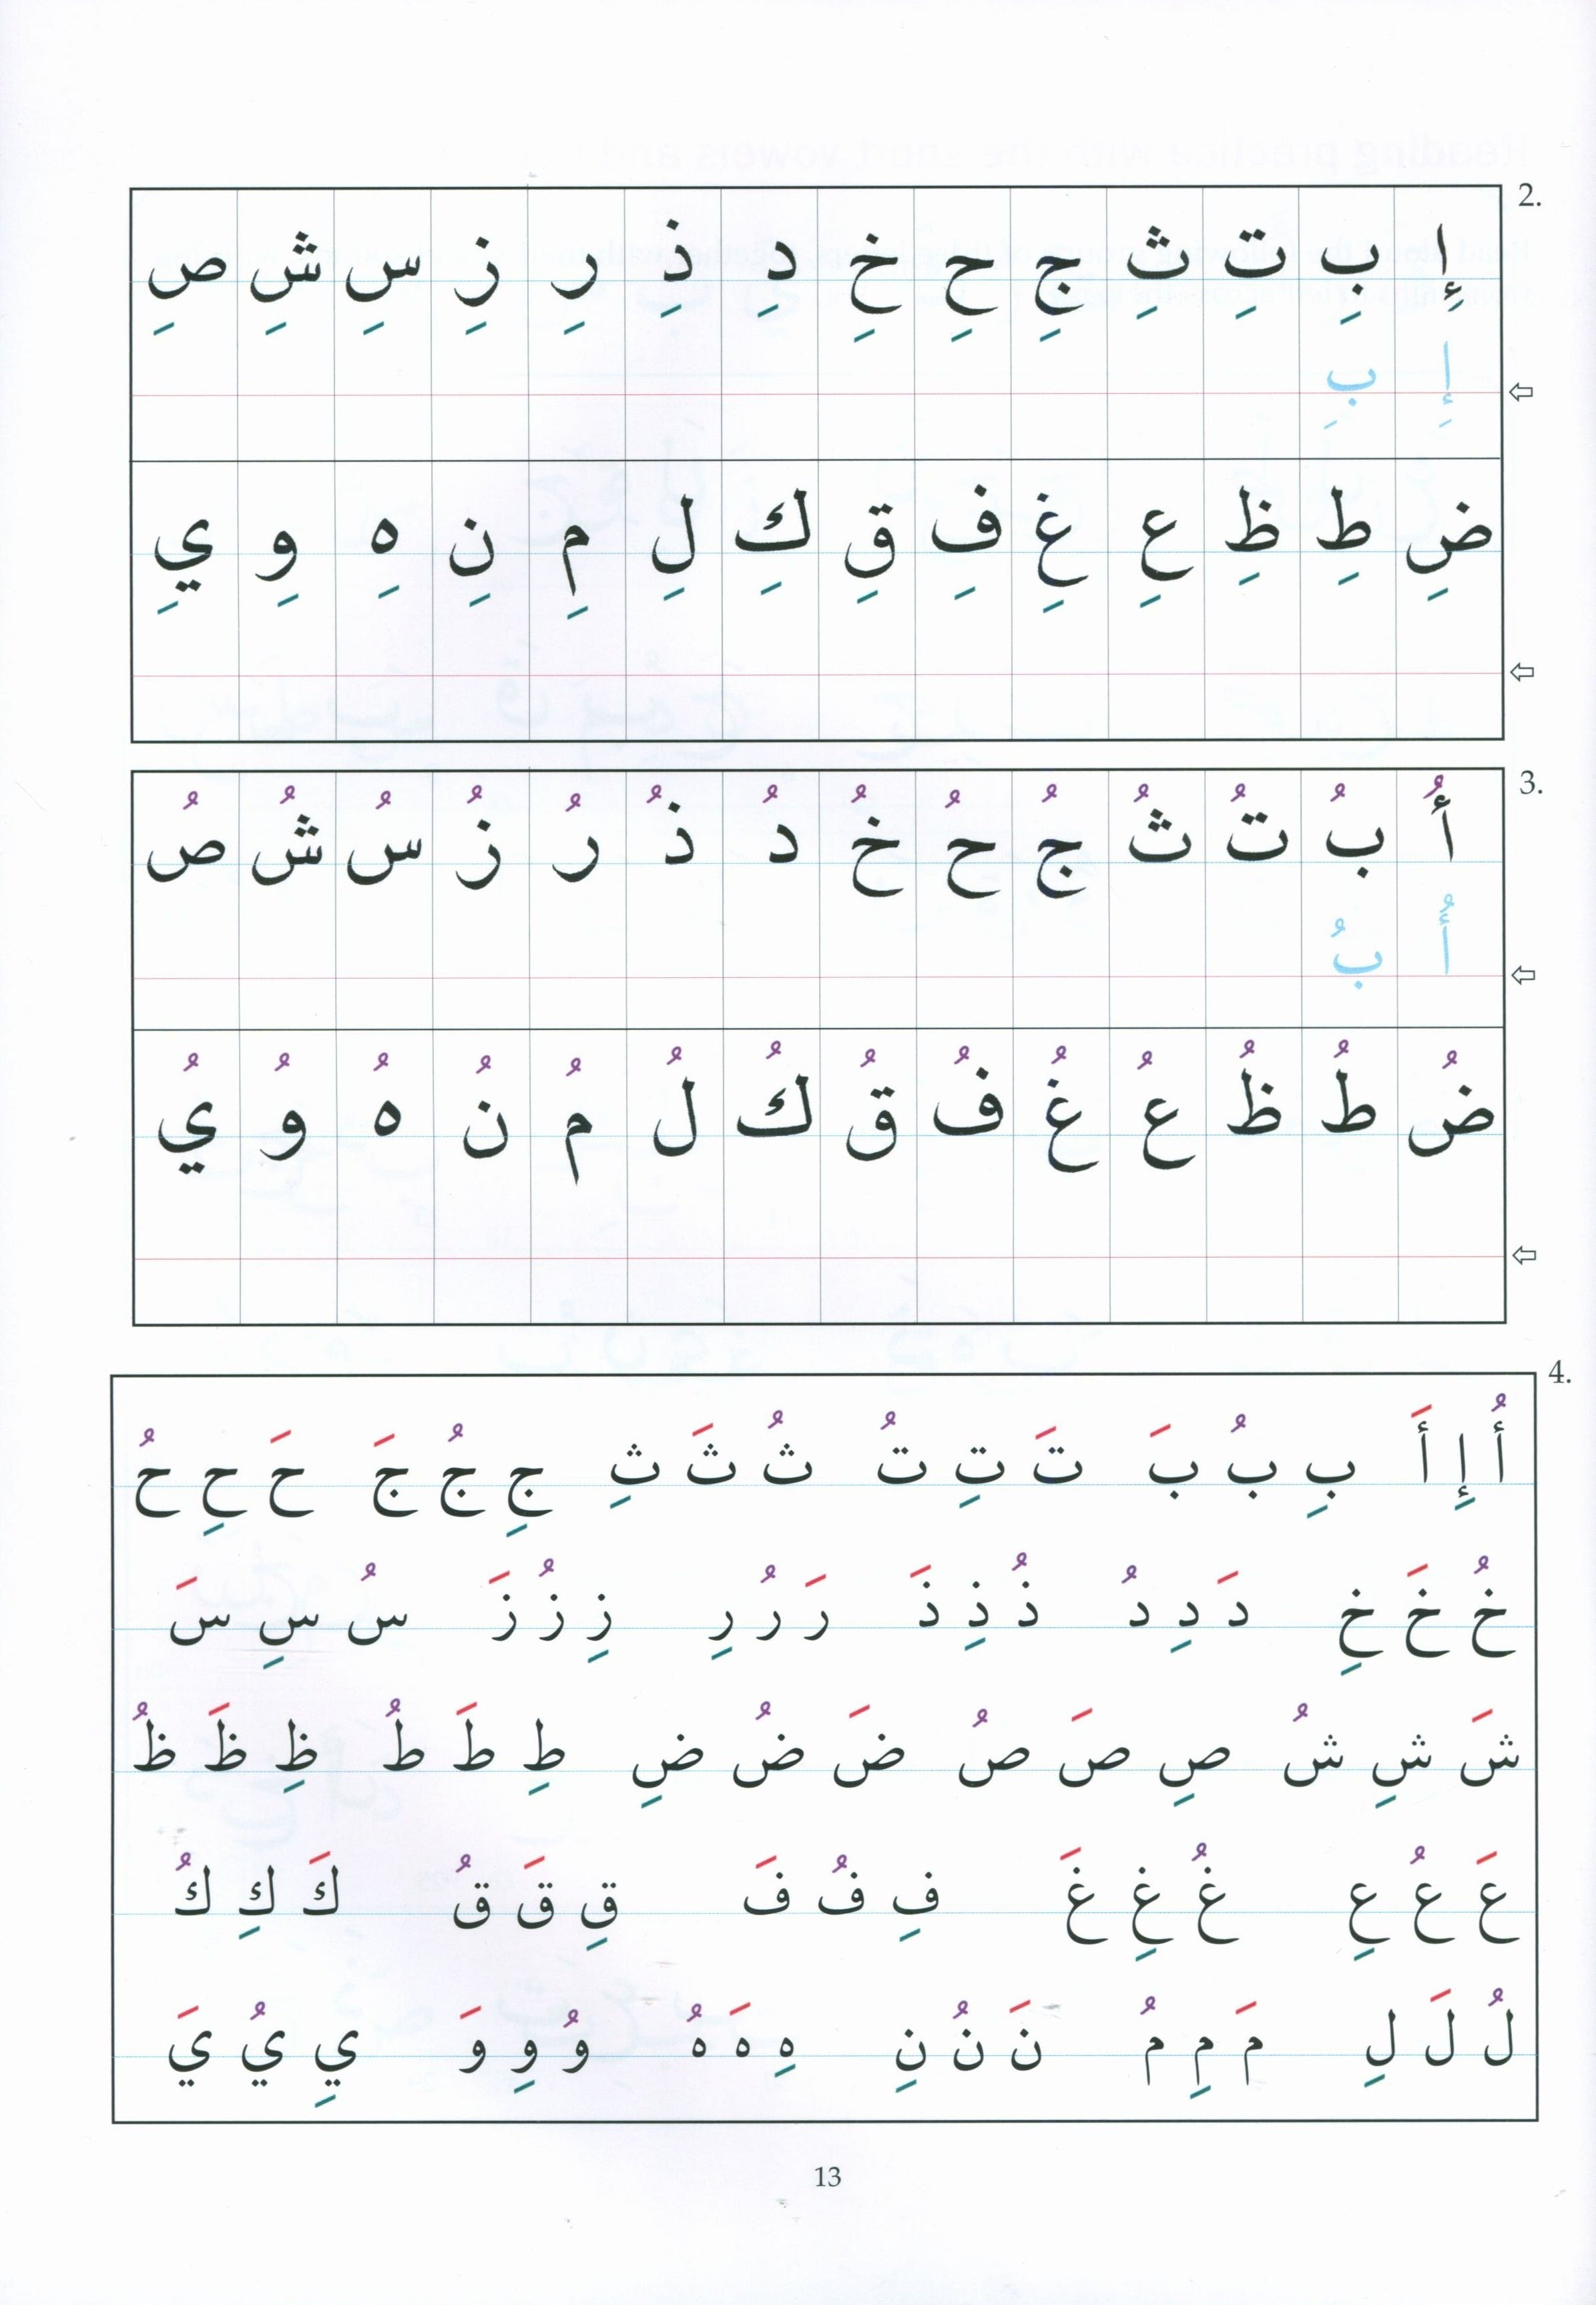 2.
إِ بِ تِ ثِ جِ حِ خِ دِ ذِ رِ زِ سِ شِ صِ
إِ بِ
ضِ طِ ظِ عِ غِ فِ قِ كِ لِ مِ نِ هِ وِ يِ
3.
أُ بُ تُ ثُ جُ حُ خُ دُ ذُ رُ زُ سُ شُ صُ
أُ بُ
ضُ طُ ظُ عُ غُ فُ قُ كُ لُ مُ نُ هُ وُ يُ
4.
أُ إِ أَ بِ بُ بَ تَ تِ تُ ثُ ثَ ثِ جِ جُ جَ حَ حِ حُ
خُ خَ خِ دَ دِ دُ ذُ ذِ ذَ رَ رُ رِ زِ زُ زَ سُ سِ سَ
شَ شِ شُ صِ صَ صُ ضَ ضُ ضِ طِ طَ طُ ظِ ظَ ظُ
عَ عُ عِ غُ غِ غَ فِ فُ فَ قِ قَ قُ كَ كِ كُ
لُ لَ لِ مَ مِ مُ نَ نُ نِ هِ هَ هُ وُ وِ وَ يِ يُ يَ
13